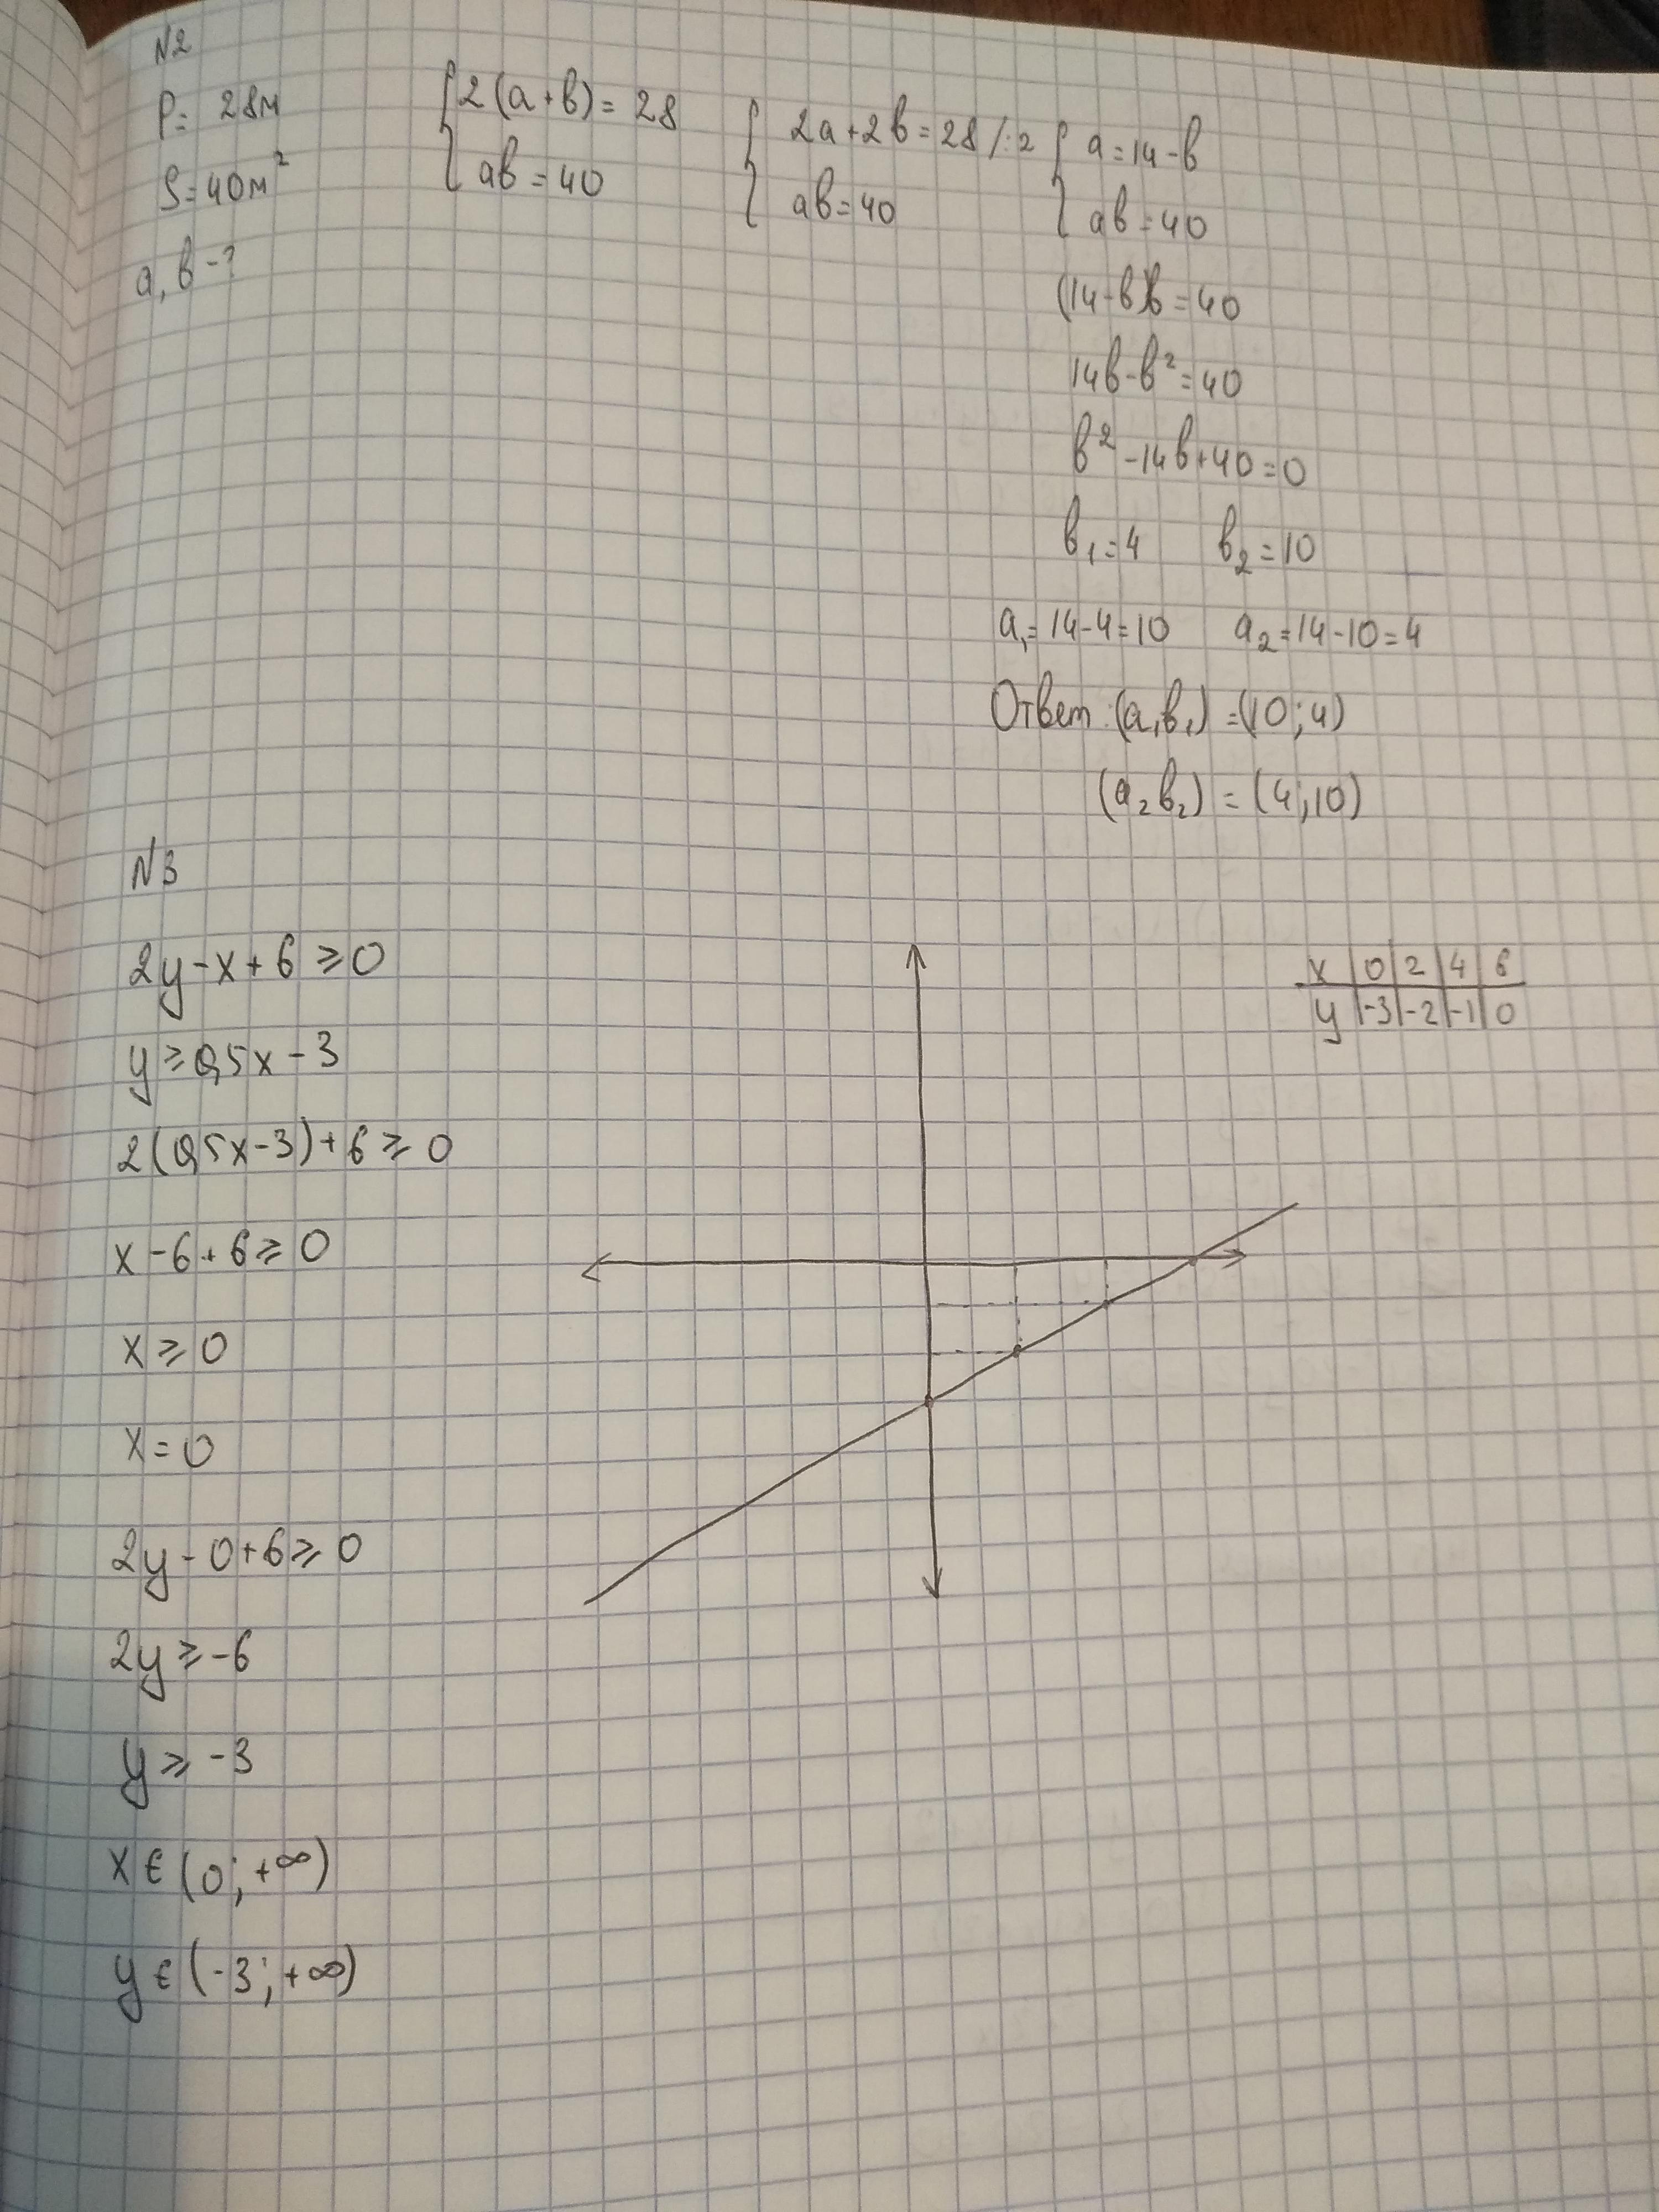 N2
P= 28м
S=40м²
a, b-?
{2(a+b)=28
{ab=40
{2a+2b=28 /:2
{ab=40
{a=14-b
{ab=40
(14-b)b=40
14b-b²=40
b²-14b+40=0
b₁=4 b₂=10
a₁=14-4=10 a₂=14-10=4
Ответ: (a₁b₁)=(10;4)
(a₂b₂)=(4;10)
N3
2y-x+6≥0
y≥0,5x-3
2(0,5x-3)+6≥0
x-6+6≥0
x≥0
x=0
2y-0+6≥0
2y≥-6
y≥-3
x∈(0;+∞)
y∈(-3;+∞)
x | 0 | 2 | 4 | 6
y | -3 | -2 | -1 | 0